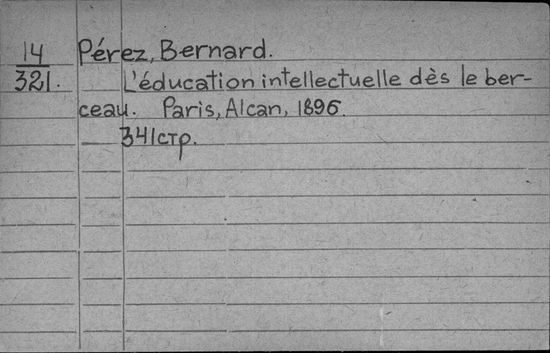 14 Pérez, Bernard.
321. L'éducation intellectuelle dès le ber-
ceau. Paris, Alcan, 1896.
341стр.